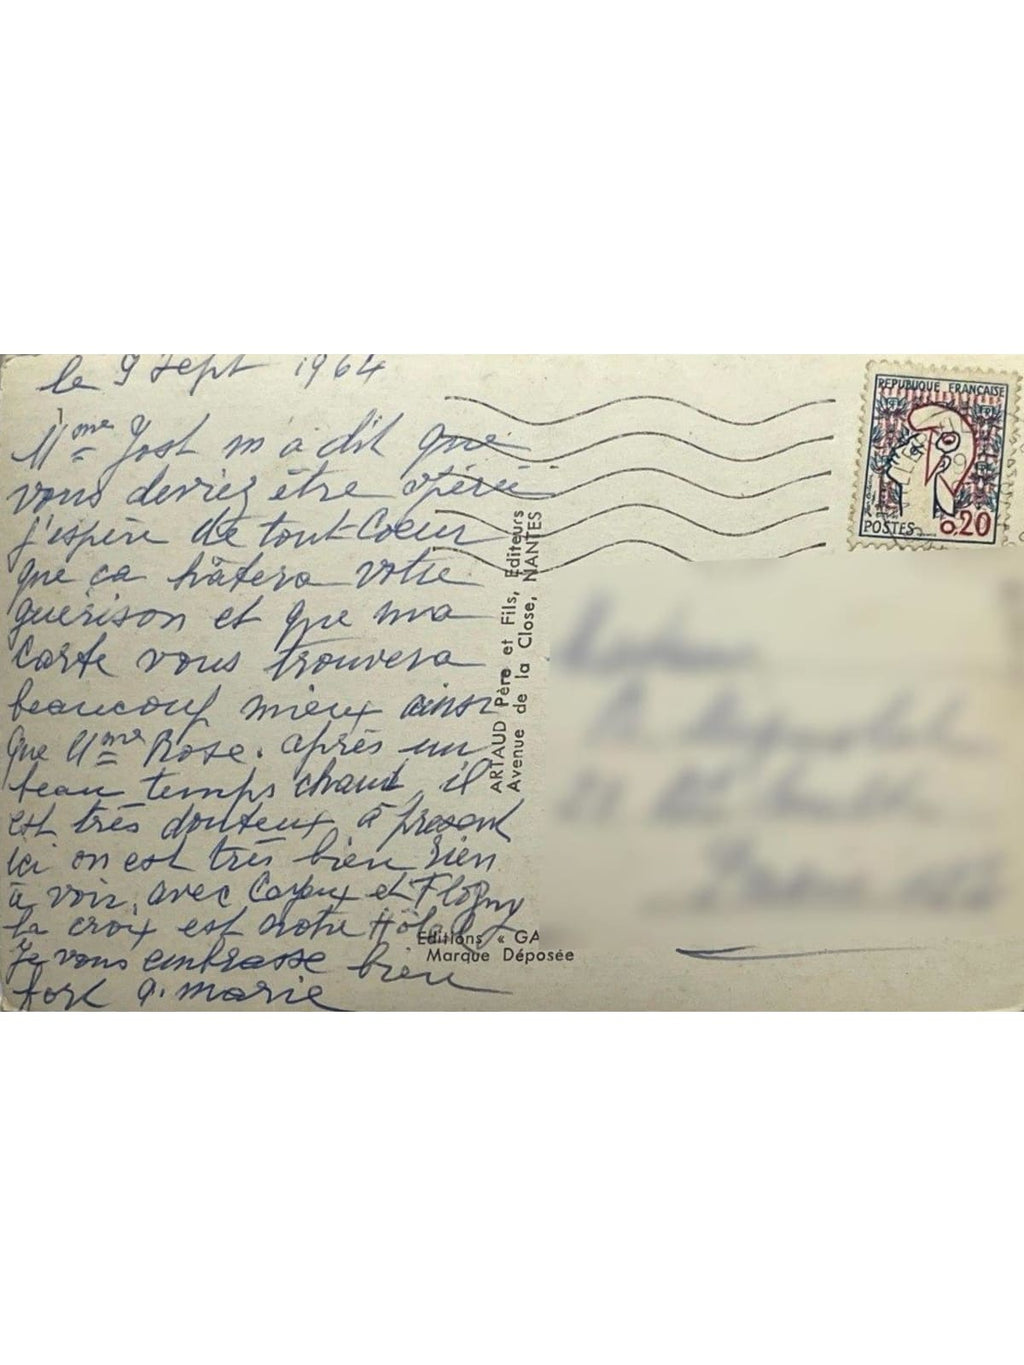 le 9 Sept 1964
Mme Jost m'a dit que
vous devriez être opérée
j'espère de tout Coeur
que ça hâtera votre
guérison et que ma
Carte vous trouvera
beaucoup mieux ainsi
que Mme Rose. après un
beau temps chaud, il
est très douteux à présent
Ici on est très bien rien
à voir, avec et
la croix est notre Hôtel
Je vous embrasse bien
fort a. marie
ARTAUD Père et Fils, Editeurs
Avenue de la Close, NANTES
Editions « GA
Marque Déposée
REPUBLIQUE FRANCAISE
POSTES 0,20